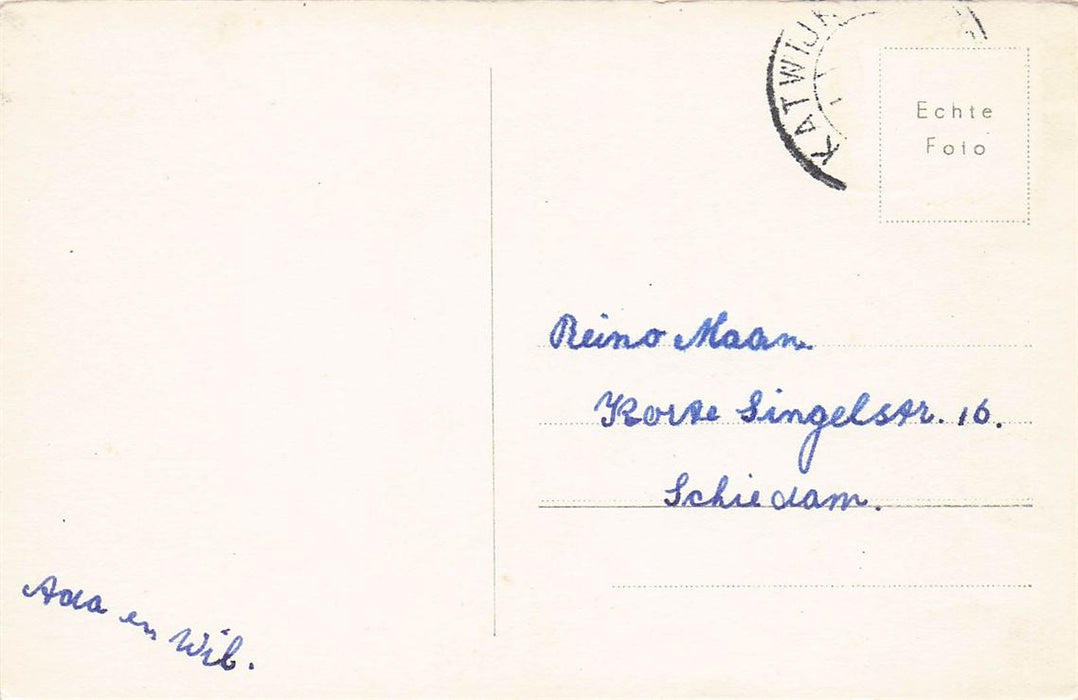 KATWIJK
Echte
Foto
Reino Maan
Korte Singelstr. 16.
Schiedam.
Ada en Wib.